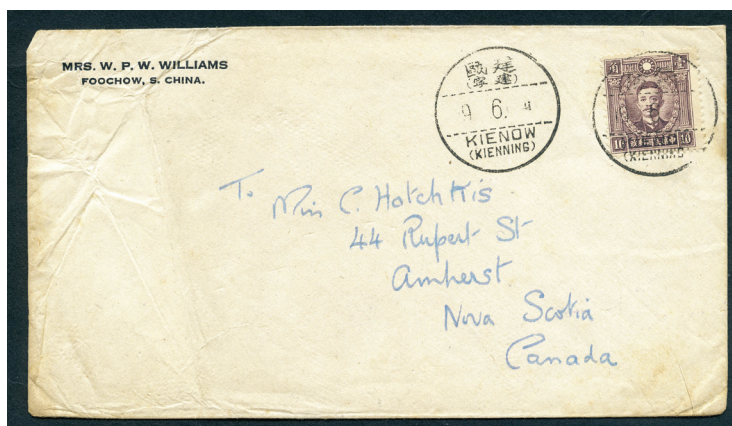 MRS. W. P. W. WILLIAMS
FOOCHOW, S. CHINA.
建甌
(建寧)
9 6.
KIENOW
(KIENNING)
角 壹
10 10
(KIENNING
To
Miss C. Hotchkis.
44 Rupert St
Amherst
Nova Scotia
Canada